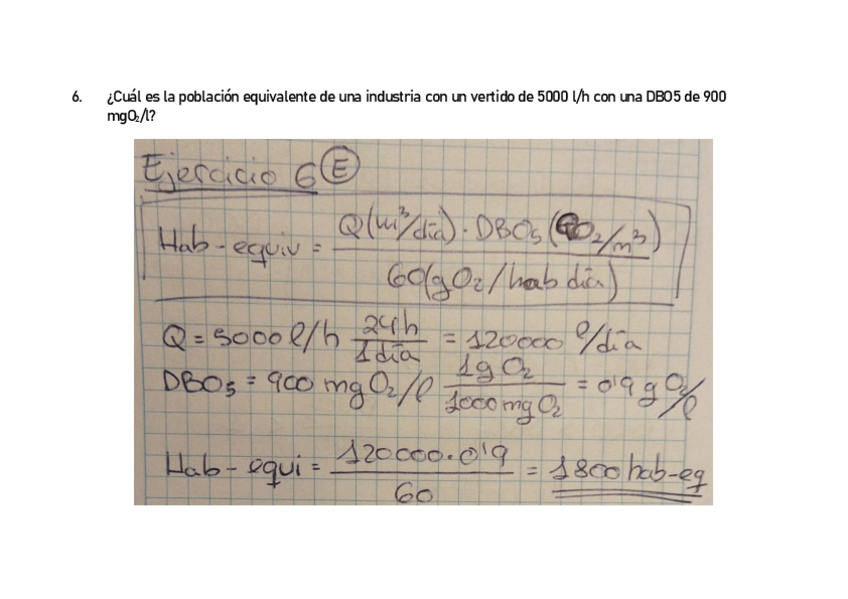 6. ¿Cuál es la población equivalente de una industria con un vertido de 5000 l/h con una DBO5 de 900
mgO₂/l?
Ejercicio 6 E
Hab-equiv = Q(m³/día) · DBO₅ (gO₂/m³)
60(gO₂/hab día)
Q = 5000 l/h 24h / 1día = 120000 l/día
DBO₅ = 900 mg O₂/l 1g O₂ / 1000 mg O₂ = 0'9 g O₂/l
Hab-equi = 120000·0'9 / 60 = 1800 hab-eq